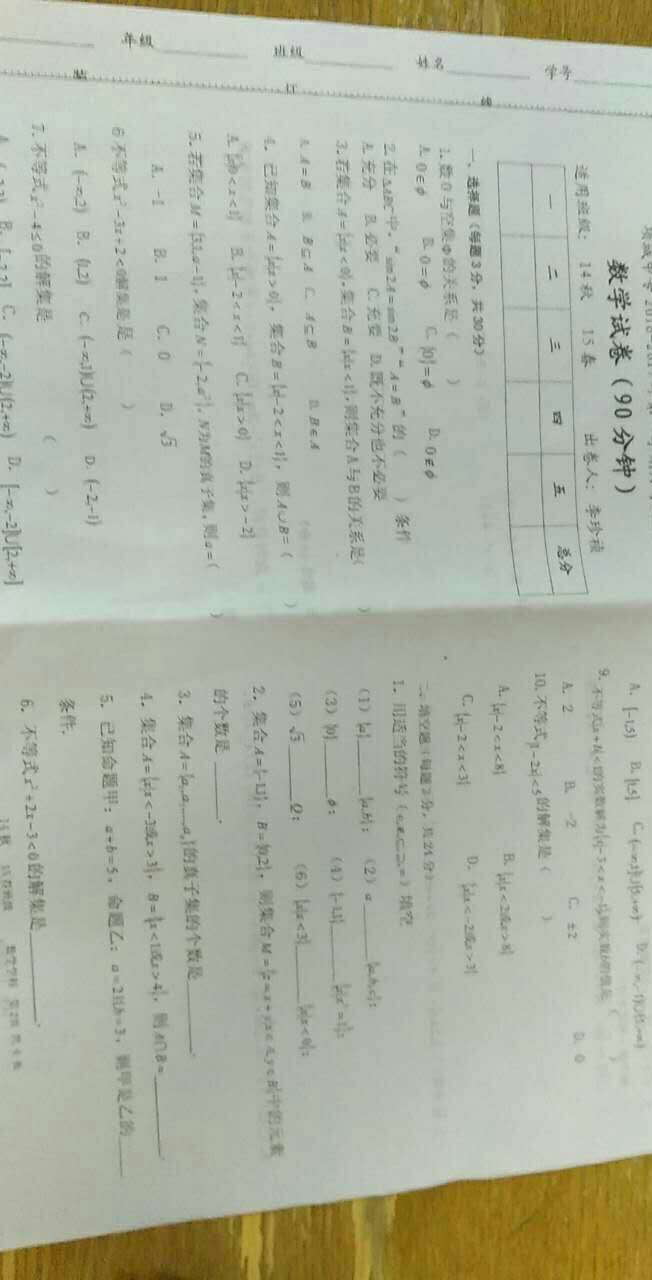 年级
班级
姓名
学号
装
订
线
数学试卷（90分钟）
适用班级： 14秋 15春 出卷人：李珍祯
一 二 三 四 五 总分
一、选择题（每题3分，共30分）
1.数0与空集φ的关系是（ ）
A. 0∈φ B. 0=φ C. {0}=φ D. 0∉φ
2.在△ABC中，“sin2A=sin2B”“A=B”的（ ）条件
A.充分 B.必要 C.充要 D.既不充分也不必要
3.若集合A={x|x<0},集合B={x|x<1},则集合A与B的关系是( )
A. A=B B. B⊆A C. A⊆B D. B∈A
4. 已知集合A={x|x>0}，集合B={x|-2<x<1}，则A∪B=（ ）
A. {x|0<x<1} B. {x|-2<x<1} C. {x|x>0} D. {x|x>-2}
5. 若集合M={3,1,a-1}，集合N={-2,a²}，N为M的真子集，则a=（ ）
A. -1 B. 1 C. 0 D. √3
6不等式x²-3x+2<0解集是是（ ）
A. (-∞,2) B. (1,2) C. (-∞,1)∪(2,+∞) D. (-2,-1)
7. 不等式x²-4≤0的解集是 （ ）
A. (-2,2) B. [-2,2] C. (-∞,-2)∪(2,+∞) D. [-∞,-2]∪[2,+∞]
A. [-1,5) B. [1,5] C. (-∞,1]∪[5,+∞)
9. 不等式|x+b|<1的实数解为{x|-3<x<-1},则实数b的值是（ ）
A. 2 B. -2 C. ±2 D. 0
10.不等式|1-2x|<5的解集是（ ）
A. {x|-2<x<8} B. {x|x<2或x>8}
C. {x|-2<x<3} D. {x|x<-2或x>3}
二、填空题（每题2分，共24分）
1. 用适当的符号（∈,∉,⊆,⊇,=）填空
（1）{a}____{a,b}； （2）a____{a,b,c}；
（3）{0}____φ； （4）{-1,1}____{x|x²=1}；
（5）√3____Q； （6）{x|x<3}____{x|x<0}；
2. 集合A={-1,1}，B={0,2}，则集合M={z|z=x+y,x∈A,y∈B}中的元素
的个数是____.
3. 集合A={a₁,a₂,...,aₙ}的真子集的个数是____.
4. 集合A={x|x<-3或x>3}，B={x|x<1或x>4}，则A∩B=____.
5. 已知命题甲：a+b=5，命题乙：a=2且b=3，则甲是乙的____
条件.
6. 不等式x²+2x-3<0的解集是____.